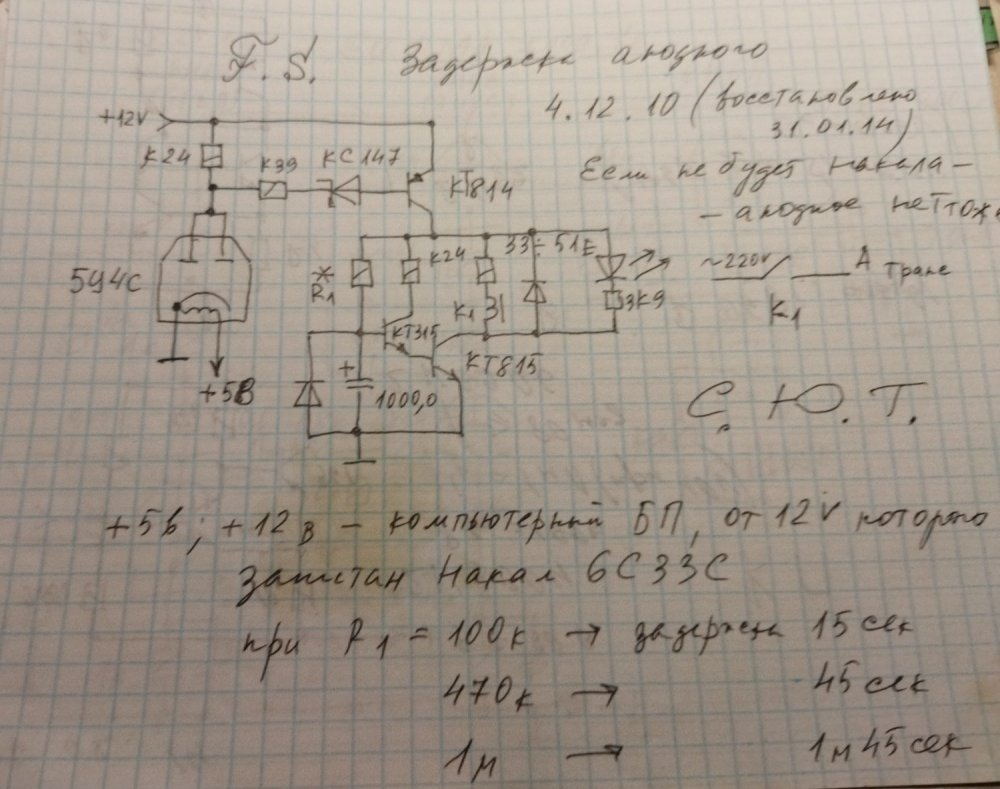 F. S. Задержка анодного
4.12.10 (восстановлено
31.01.14)
Если не будет накала -
- анодное не
+12V
К24
К39
КС147
КТ814
5Ц4С
+5В
*
R1
К24
К1
33÷51Е
3К9
КТ315
КТ815
+
1000,0
~220V
А Транс
К1
С. Ю. Т.
+5в; +12в - компьютерный БП, от 12V которого
запитан Накал 6С33С
при R1 = 100к → задержка 15 сек
470к → 45 сек
1м → 1м 45 сек